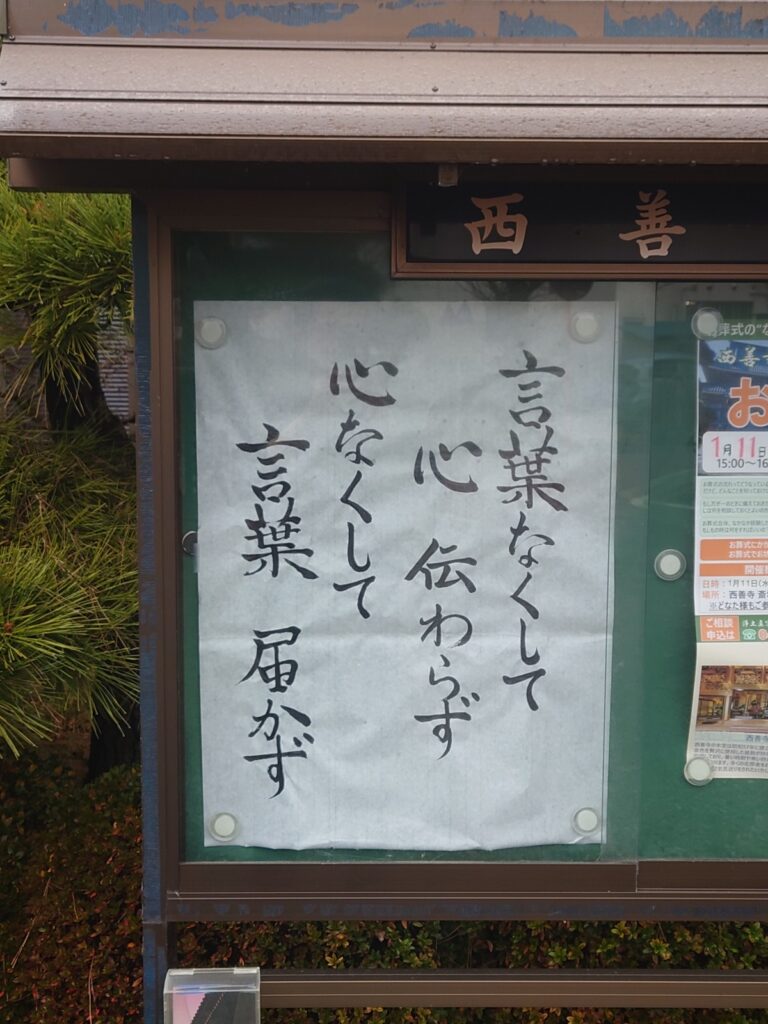 西善
言葉なくして
心 伝わらず
心なくして
言葉 届かず
西善寺
お
1月11日
15:00〜16
お葬式にかか
お葬式でお坊
開催
日時：1月11日(水
場所：西善寺 斎
※どなた様もご参
ご相談
申込は
浄土真
西善寺